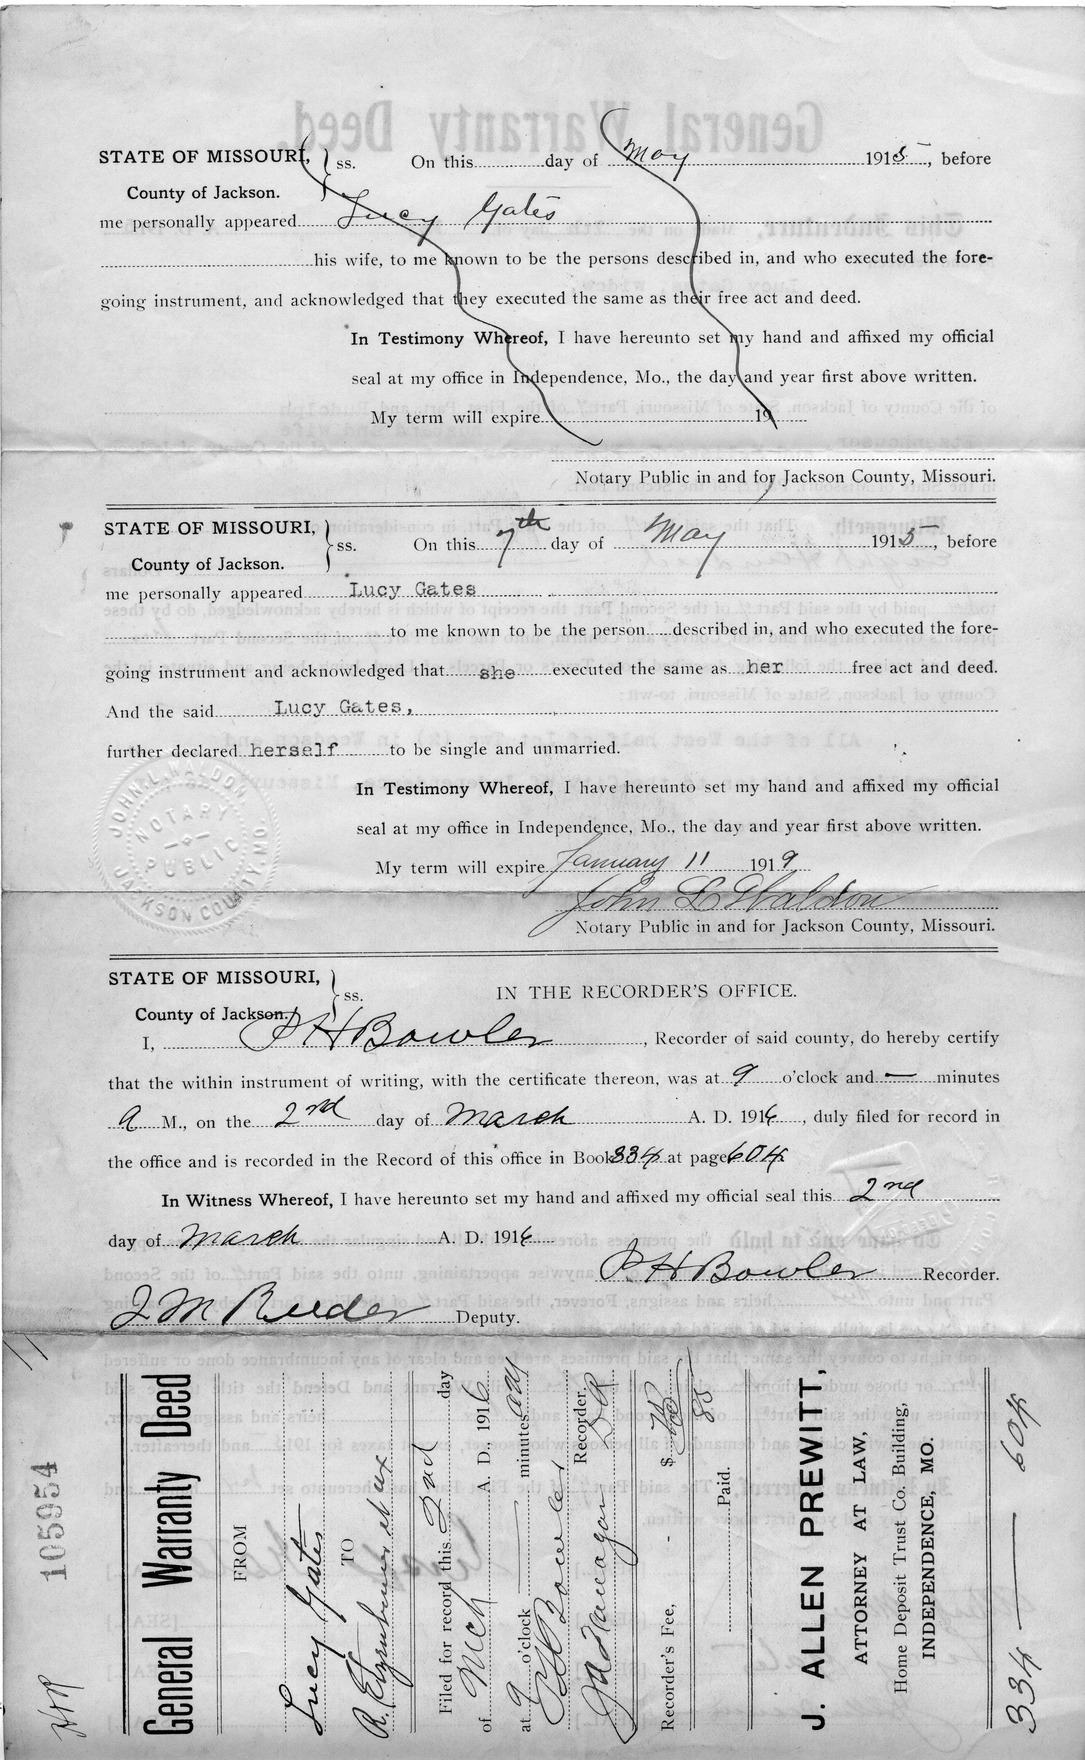 STATE OF MISSOURI, ss. On this day of May 1915, before
County of Jackson.
me personally appeared Lucy Gates
his wife, to me known to be the persons described in, and who executed the fore-
going instrument, and acknowledged that they executed the same as their free act and deed.
In Testimony Whereof, I have hereunto set my hand and affixed my official
seal at my office in Independence, Mo., the day and year first above written.
My term will expire 19
Notary Public in and for Jackson County, Missouri.
STATE OF MISSOURI, ss. On this 7th day of May 1915, before
County of Jackson.
me personally appeared Lucy Gates
to me known to be the person described in, and who executed the fore-
going instrument and acknowledged that she executed the same as her free act and deed.
And the said Lucy Gates,
further declared herself to be single and unmarried.
In Testimony Whereof, I have hereunto set my hand and affixed my official
seal at my office in Independence, Mo., the day and year first above written.
My term will expire January 11 1919
John L Waldron
Notary Public in and for Jackson County, Missouri.
JOHN L. WALDRON
NOTARY
PUBLIC
JACKSON COUNTY, MO.
STATE OF MISSOURI, ss. IN THE RECORDER'S OFFICE.
County of Jackson.
I, P H Bowler, Recorder of said county, do hereby certify
that the within instrument of writing, with the certificate thereon, was at 9 o'clock and — minutes
a M., on the 2nd day of March A. D. 1916, duly filed for record in
the office and is recorded in the Record of this office in Book 334 at page 604
In Witness Whereof, I have hereunto set my hand and affixed my official seal this 2nd
day of March A. D. 1916
P H Bowler Recorder.
J M Reeder Deputy.
105954
General Warranty Deed
FROM
Lucy Gates
TO
R. et ux
Filed for record this 2nd day
of Mch A. D., 1916
at 9 o'clock minutes a M
P H Bowler Recorder.
Recorder's Fee, - - $
Paid.
J. ALLEN PREWITT,
ATTORNEY AT LAW,
Home Deposit Trust Co. Building,
INDEPENDENCE, MO.
334 — 604